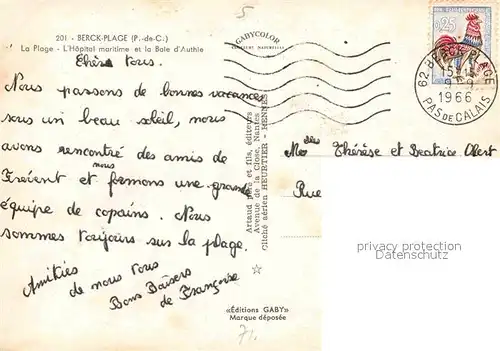 201 - BERCK-PLAGE (P.-de-C.)
La Plage - L'Hôpital maritime et la Baie d'Authie
Chers tous.
Nous passons de bonnes vacances
sous un beau soleil, nous
avons rencontré des amis de
Frévent et nous formons une grande
équipe de copains. Nous
sommes toujours sur la plage.
Amitiés
de nous tous
Bons Baisers
de Françoise
5
GABYCOLOR
COULEURS NATURELLES
Artaud père et fils, éditeurs
Avenue de la Close, Nantes
Cliché aérien HEURTIER - RENNES
«Editions GABY»
Marque déposée
71.
0,25
62 BERCK-PLAGE
15H15
1966
PAS DE CALAIS
Melles Thérèse et Beatrice
Rue
privacy protection
Datenschutz